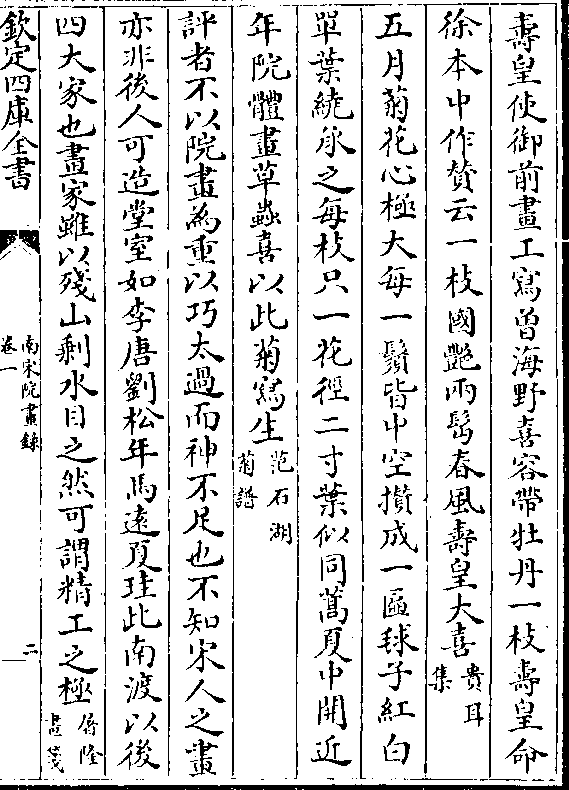 壽皇使御前畫工寫曾海野喜容帶牡丹一枝壽皇命
徐本中作賛云一枝國艷兩髩春風壽皇大喜貴耳集
五月菊花心極大每一鬚皆中空攅成一匾毬子紅白
單葉繞承之每枝只一花徑二寸葉似同蒿夏中開近
年院體畫草蟲喜以此菊寫生范石湖菊譜
評者不以院畫為重以巧太過而神不足也不知宋人之畫
亦非後人可造堂室如李唐劉松年馬遠夏珪此南渡以後
四大家也畫家雖以殘山剩水目之然可謂精工之極屠隆畫箋
欽定四庫全書
南宋院畫錄
卷一
二